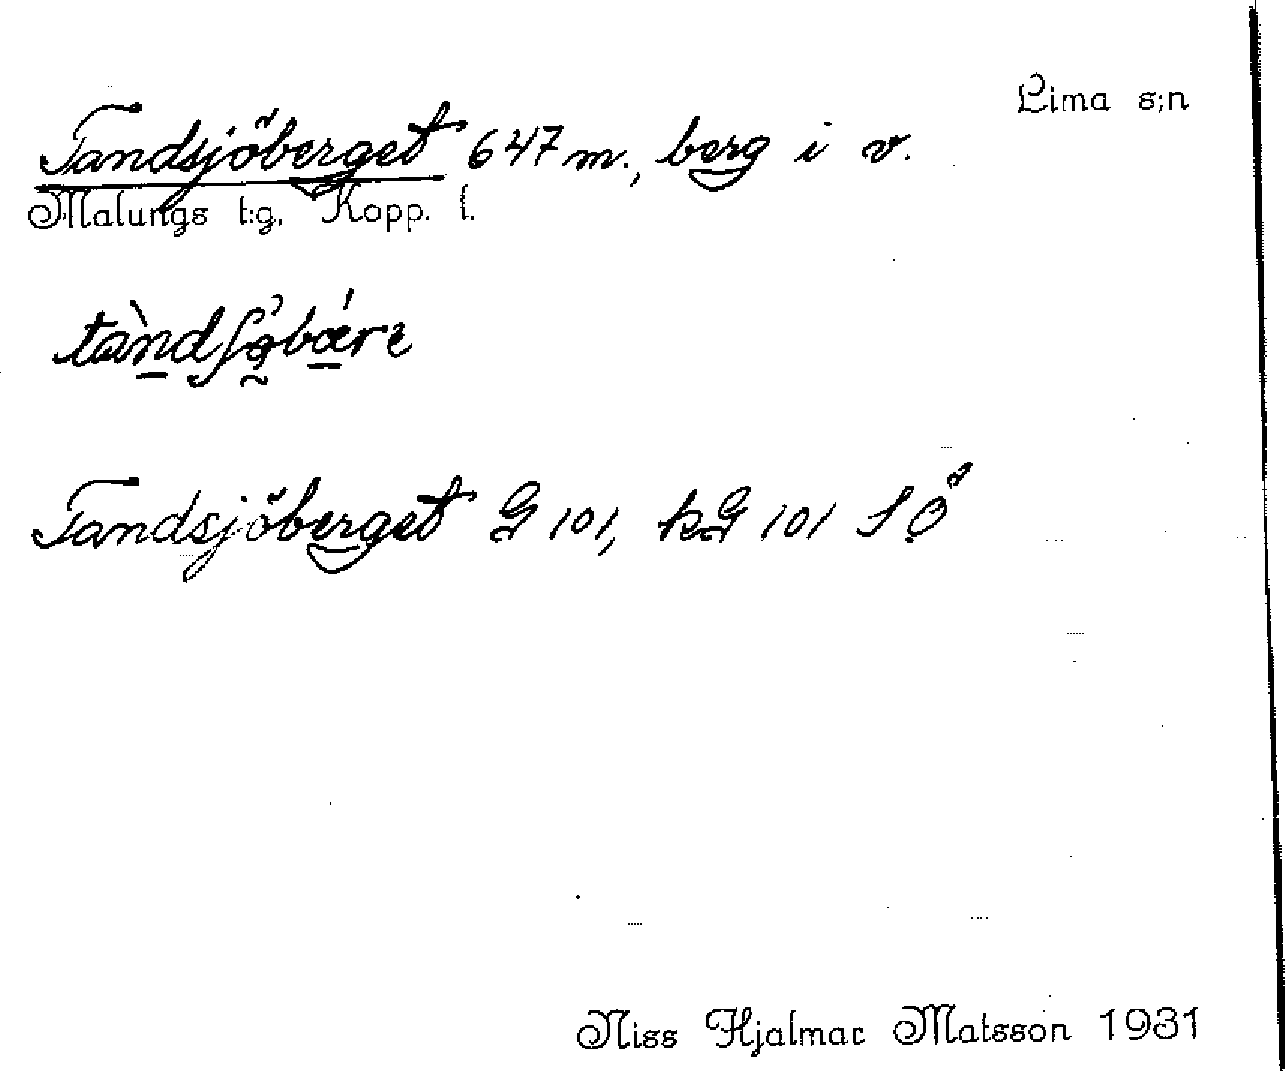 Lima s:n
Tandsjöberget 647 m., berg i v.
Malungs t:g. Kopp. l.
Tandsjöberget G 101, kG 101 SÖ
Niss Hjalmar Matsson 1931